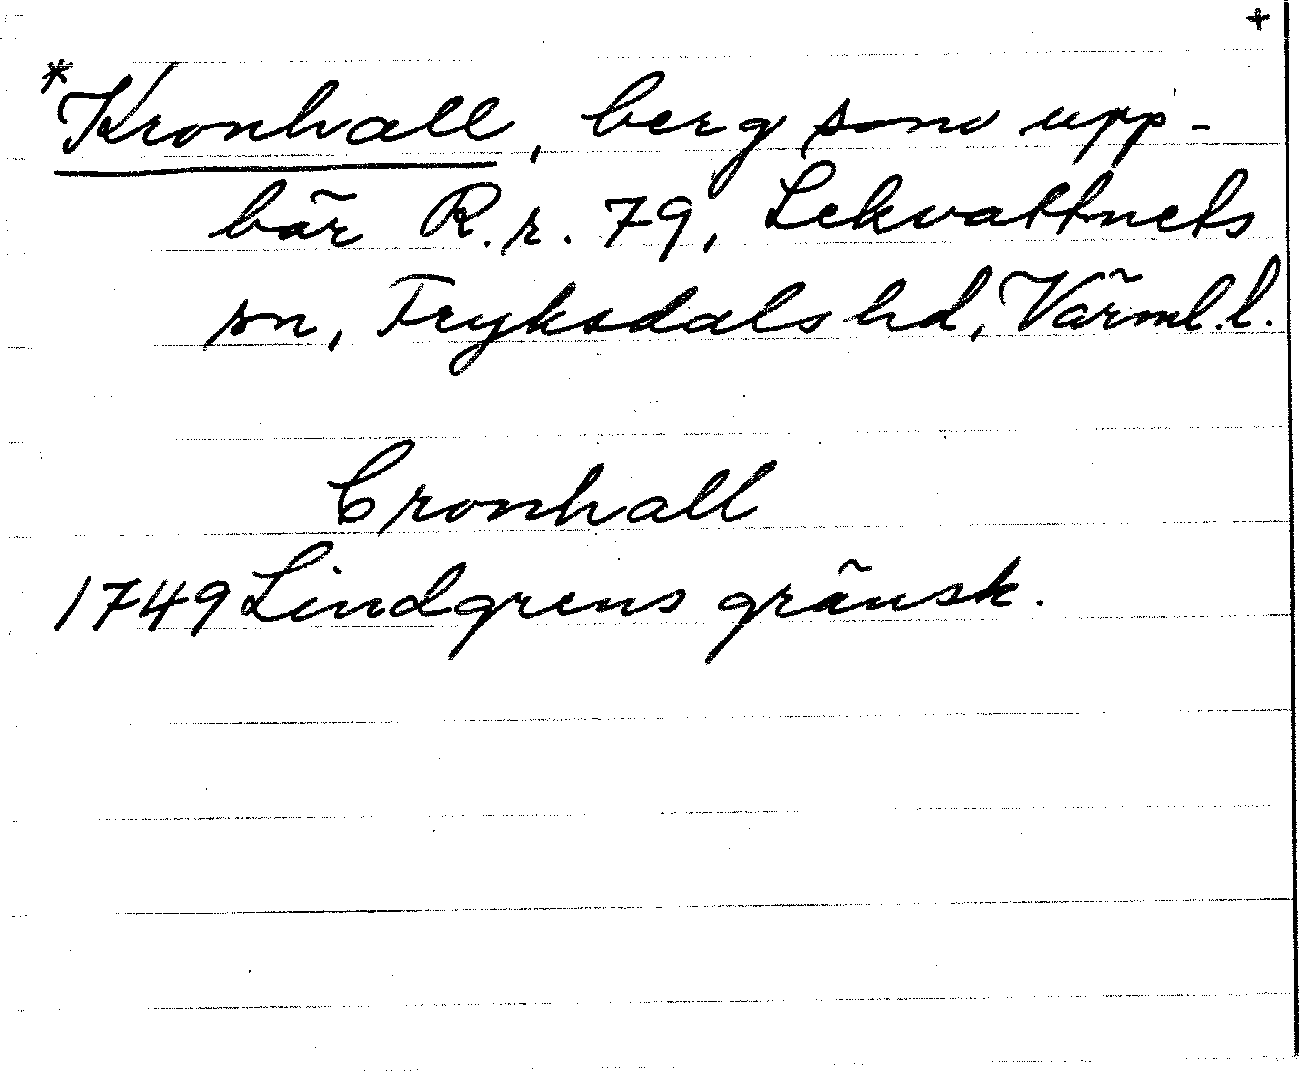 +
*Kronhall, berg som upp-
bär R.r. 79, Lekvattnets
sn, Fryksdals hd, Värml.l.
Cronhall
1749 Lindgrens gränsk.